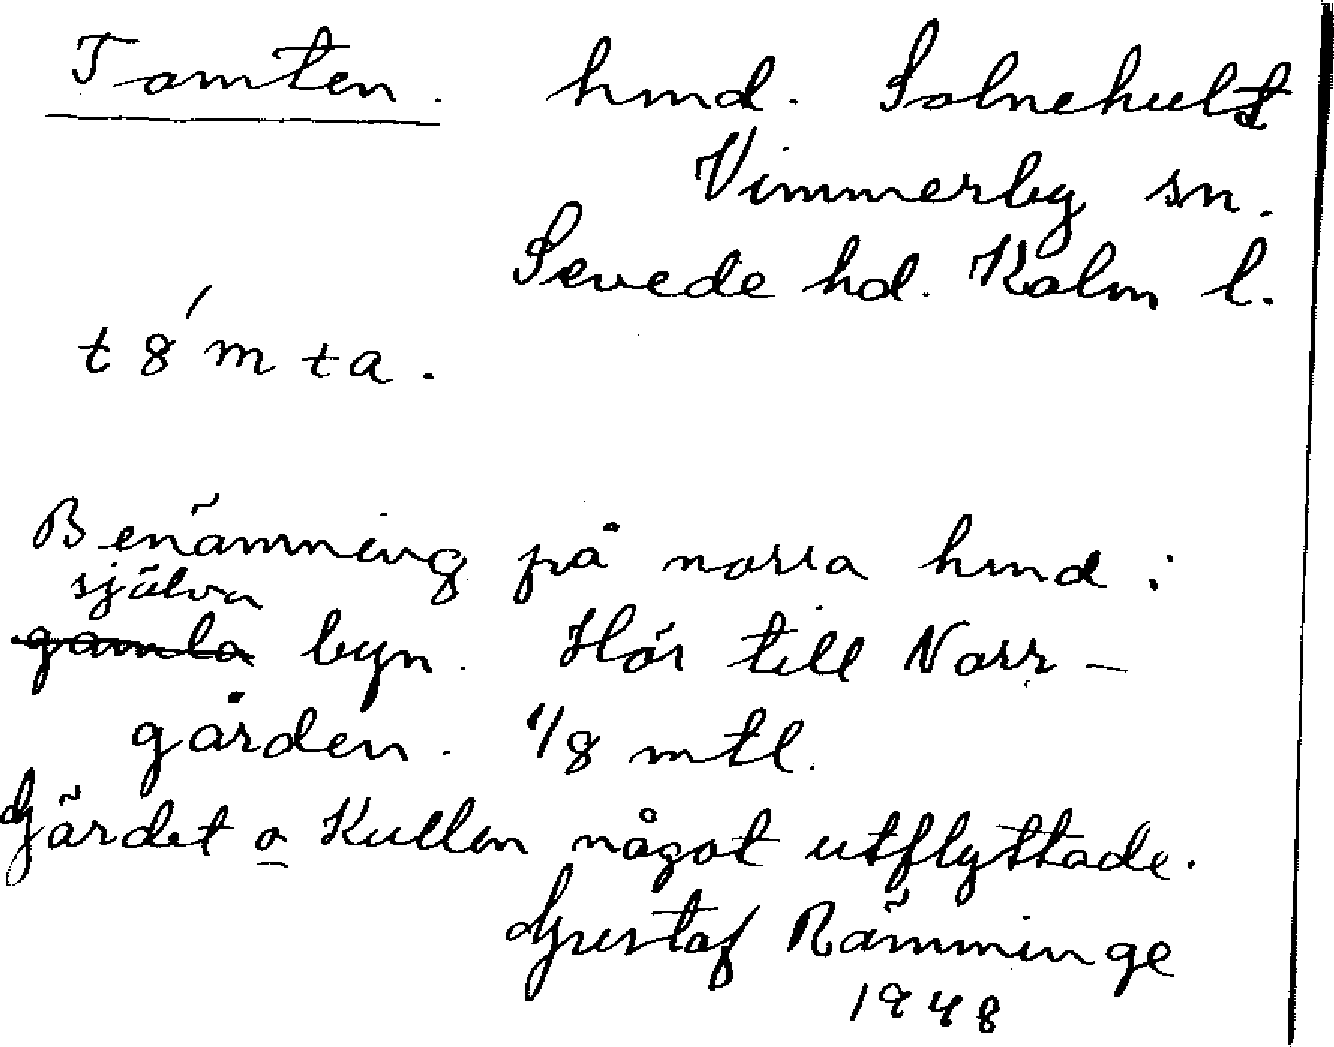 Tomten. hmd. Solnehult
Vimmerby sn.
Sevede hd. Kalm l.
t8́mta.
Benämning på norra hmd i
själva
gamla byn. Hör till Norr-
gården. 1/8 mtl.
Gärdet o Kullen något utflyttade.
Gustaf Rämminge
1948